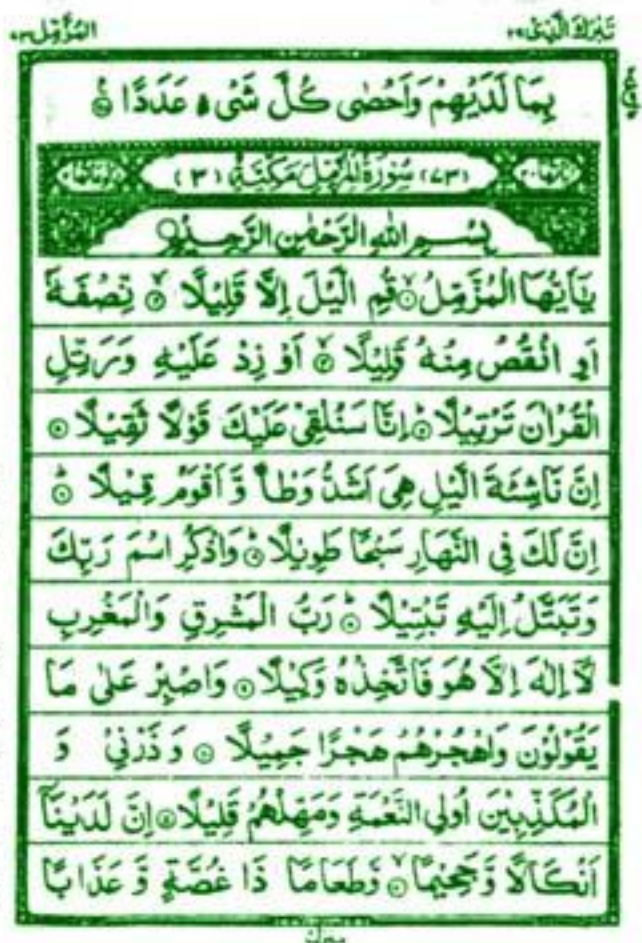 تَبٰرَكَ الَّذِیْ ۲۹
الْمُزَّمِّل ۷۳
بِمَا لَدَيْهِمْ وَاَحْصٰى كُلَّ شَىْءٍ عَدَدًا ۝
(۷۳) سُوْرَةُ الْمُزَّمِّلِ مَكِّيَّةٌ (۳)
بِسْمِ اللهِ الرَّحْمٰنِ الرَّحِيْمِ
يٰۤاَيُّهَا الْمُزَّمِّلُ ۝۱ قُمِ الَّيْلَ اِلَّا قَلِيْلًا ۝۲ نِّصْفَهٗۤ
اَوِ انْقُصْ مِنْهُ قَلِيْلًا ۝۳ اَوْ زِدْ عَلَيْهِ وَرَتِّلِ
الْقُرْاٰنَ تَرْتِيْلًا ۝۴ اِنَّا سَنُلْقِيْ عَلَيْكَ قَوْلًا ثَقِيْلًا ۝۵
اِنَّ نَاشِئَةَ الَّيْلِ هِىَ اَشَدُّ وَطْاً وَّ اَقْوَمُ قِيْلًا ۝۶
اِنَّ لَكَ فِى النَّهَارِ سَبْحًا طَوِيْلًا ۝۷ وَاذْكُرِ اسْمَ رَبِّكَ
وَتَبَتَّلْ اِلَيْهِ تَبْتِيْلًا ۝۸ رَبُّ الْمَشْرِقِ وَالْمَغْرِبِ
لَاۤ اِلٰهَ اِلَّا هُوَ فَاتَّخِذْهُ وَكِيْلًا ۝۹ وَاصْبِرْ عَلٰى مَا
يَقُوْلُوْنَ وَاهْجُرْهُمْ هَجْرًا جَمِيْلًا ۝۱۰ وَ ذَرْنِيْ وَ
الْمُكَذِّبِيْنَ اُولِى النَّعْمَةِ وَمَهِّلْهُمْ قَلِيْلًا ۝۱۱ اِنَّ لَدَيْنَاۤ
اَنْكَالًا وَّ جَحِيْمًا ۝۱۲ وَّ طَعَامًا ذَا غُصَّةٍ وَّ عَذَابًا